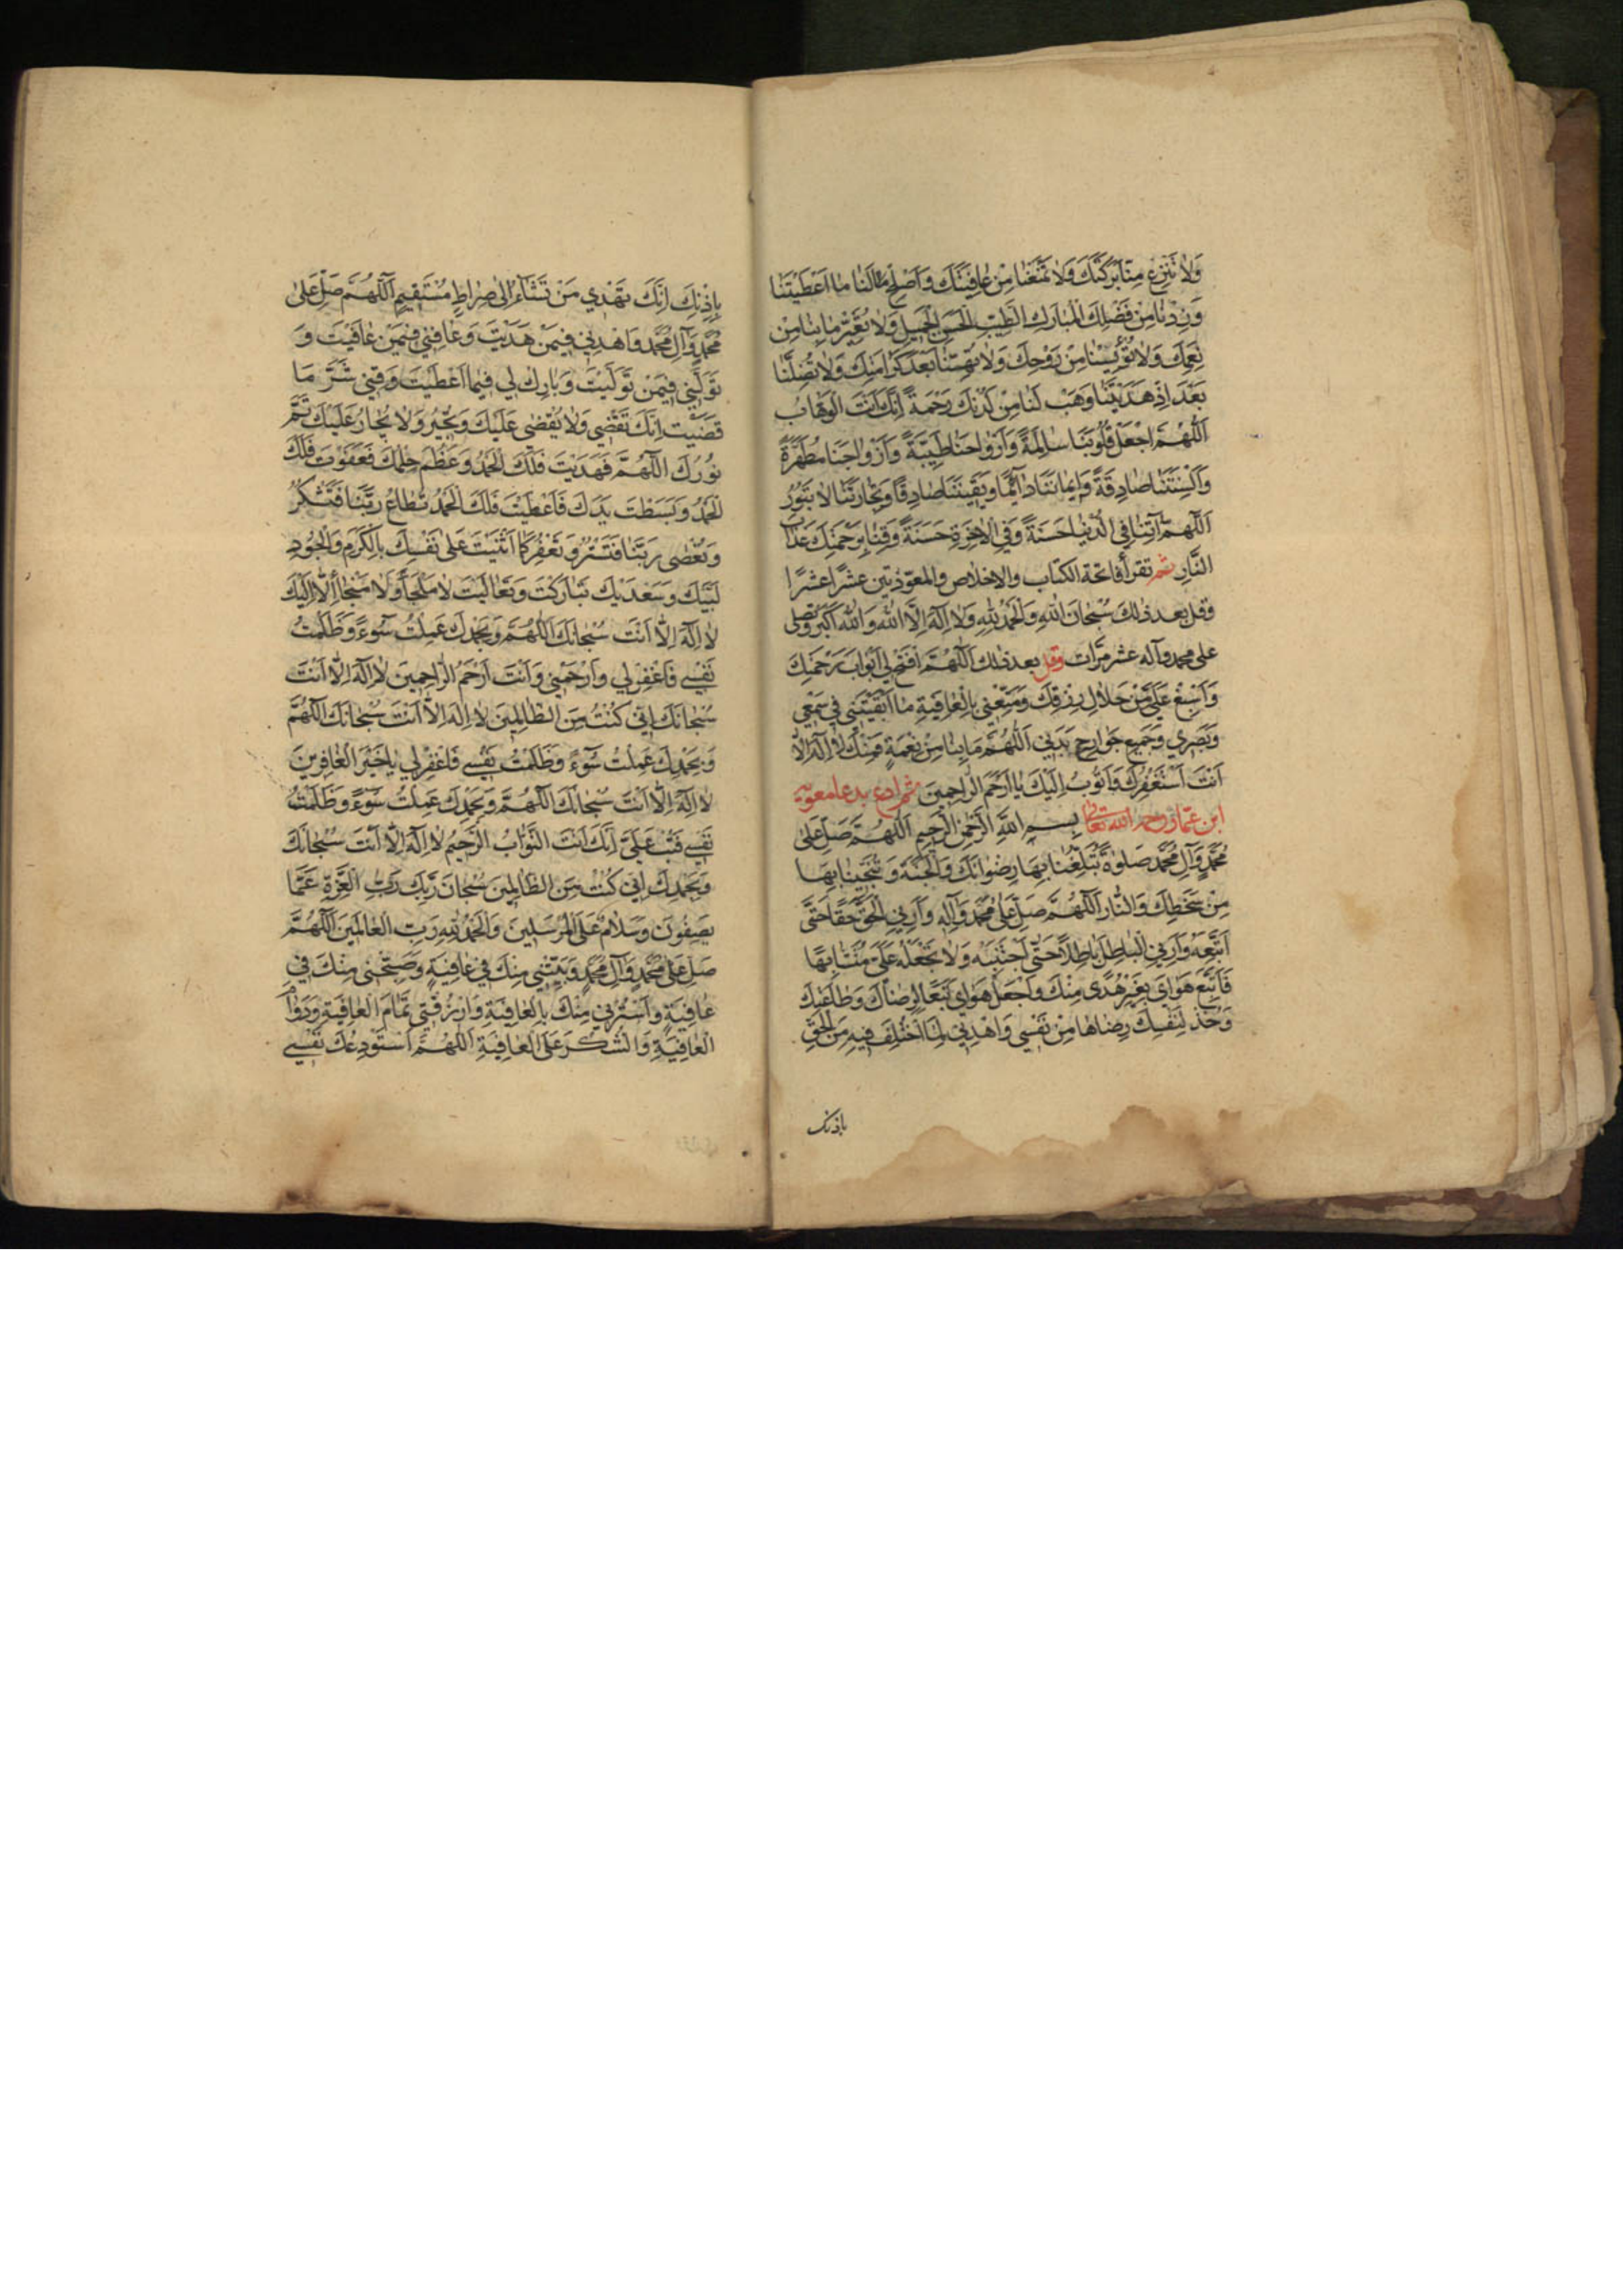 وَلٰا تَنْزِعْ مِنّٰا بَرَكَتَكَ وَلٰا تَمْنَعْنٰا مِنْ عٰافِيَتِكَ وَاَصْلِحْ لَنٰا مٰا اَعْطَيْتَنٰا
وَزِدْنٰا مِنْ فَضْلِكَ الْمُبٰارَكِ الطَّيِّبِ الْحَسَنِ الْجَمِيلِ وَلٰا تُغَيِّرْ مٰا بِنٰا مِنْ
نِعَمِكَ وَلٰا تُؤْيِسْنٰا مِنْ رَوْحِكَ وَلٰا تُهِنّٰا بَعْدَ كَرٰامَتِكَ وَلٰا تُضِلَّنٰا
بَعْدَ اِذْ هَدَيْتَنٰا وَهَبْ لَنٰا مِنْ لَدُنْكَ رَحْمَةً اِنَّكَ اَنْتَ الْوَهّٰابُ
اَللّٰهُمَّ اجْعَلْ قُلُوبَنٰا سٰالِمَةً وَاَرْوٰاحَنٰا طَيِّبَةً وَاَزْوٰاجَنٰا مُطَهَّرَةً
وَاَلْسِنَتَنٰا صٰادِقَةً وَاِيمٰانَنٰا دٰائِمًا وَيَقِينَنٰا صٰادِقًا وَتِجٰارَتَنٰا لٰا تَبُورُ
اَللّٰهُمَّ آتِنٰا فِي الدُّنْيٰا حَسَنَةً وَفِي الْآخِرَةِ حَسَنَةً وَقِنٰا بِرَحْمَتِكَ عَذٰابَ
النّٰارِ ثم تقرأ فاتحة الكتاب والاخلاص والمعوّذتين عشرًا عشرًا
وقل بعد ذلك سُبْحٰانَ اللّٰهِ وَالْحَمْدُ لِلّٰهِ وَلٰا اِلٰهَ اِلَّا اللّٰهُ وَاللّٰهُ اَكْبَرُ وتصلى
على محمد وآله عشر مرّات وقل بعد ذلك اَللّٰهُمَّ افْتَحْ لِي اَبْوٰابَ رَحْمَتِكَ
وَاَسْبِغْ عَلَيَّ مِنْ حَلٰالِ رِزْقِكَ وَمَتِّعْنِي بِالْعٰافِيَةِ مٰا اَبْقَيْتَنِي فِي سَمْعِي
وَبَصَرِي وَجَمِيعِ جَوٰارِحِ بَدَنِي اَللّٰهُمَّ مٰا بِنٰا مِنْ نِعْمَةٍ فَمِنْكَ لٰا اِلٰهَ اِلّٰا
اَنْتَ اَسْتَغْفِرُكَ وَاَتُوبُ اِلَيْكَ يٰا اَرْحَمَ الرّٰاحِمِينَ ثم ادع بدعا معوية
ابن عمار رحمه الله تعالى بِسْمِ اللّٰهِ الرَّحْمٰنِ الرَّحِيمِ اَللّٰهُمَّ صَلِّ عَلٰى
مُحَمَّدٍ وَآلِ مُحَمَّدٍ صَلٰوةً تُبَلِّغُنٰا بِهٰا رِضْوٰانَكَ وَالْجَنَّةَ وَتُنْجِينٰا بِهٰا
مِنْ سَخَطِكَ وَالنّٰارِ اَللّٰهُمَّ صَلِّ عَلٰى مُحَمَّدٍ وَآلِهِ وَاَرِنِي الْحَقَّ حَقًّا حَتّٰى
اَتَّبِعَهُ وَاَرِنِي الْبٰاطِلَ بٰاطِلًا حَتّٰى اَجْتَنِبَهُ وَلٰا تَجْعَلْهُ عَلَيَّ مُتَشٰابِهًا
فَاَتَّبِعَ هَوٰايَ بِغَيْرِ هُدًى مِنْكَ وَاجْعَلْ هَوٰايَ تَبَعًا لِرِضٰاكَ وَطٰاعَتِكَ
وَخُذْ لِنَفْسِكَ رِضٰاهٰا مِنْ نَفْسِي وَاهْدِنِي لِمَا اخْتُلِفَ فِيهِ مِنَ الْحَقِّ
باذنك
بِاِذْنِكَ اِنَّكَ تَهْدِي مَنْ تَشٰاءُ اِلٰى صِرٰاطٍ مُسْتَقِيمٍ اَللّٰهُمَّ صَلِّ عَلٰى
مُحَمَّدٍ وَآلِ مُحَمَّدٍ وَاهْدِنِي فِيمَنْ هَدَيْتَ وَعٰافِنِي فِيمَنْ عٰافَيْتَ وَ
تَوَلَّنِي فِيمَنْ تَوَلَّيْتَ وَبٰارِكْ لِي فِيمٰا اَعْطَيْتَ وَقِنِي شَرَّ مٰا
قَضَيْتَ اِنَّكَ تَقْضِي وَلٰا يُقْضٰى عَلَيْكَ وَتُجِيرُ وَلٰا يُجٰارُ عَلَيْكَ تَمَّ
نُورُكَ اَللّٰهُمَّ فَهَدَيْتَ فَلَكَ الْحَمْدُ وَعَظُمَ حِلْمُكَ فَعَفَوْتَ فَلَكَ
الْحَمْدُ وَبَسَطْتَ يَدَكَ فَاَعْطَيْتَ فَلَكَ الْحَمْدُ تُطٰاعُ رَبَّنٰا فَتَشْكُرُ
وَتُعْصٰى رَبَّنٰا فَتَسْتُرُ وَتَغْفِرُ كَمٰا اَثْنَيْتَ عَلٰى نَفْسِكَ بِالْكَرَمِ وَالْجُودِ
لَبَّيْكَ وَسَعْدَيْكَ تَبٰارَكْتَ وَتَعٰالَيْتَ لٰا مَلْجَأَ وَلٰا مَنْجٰا اِلّٰا اِلَيْكَ
لٰا اِلٰهَ اِلّٰا اَنْتَ سُبْحٰانَكَ اَللّٰهُمَّ وَبِحَمْدِكَ عَمِلْتُ سُوٓءً وَظَلَمْتُ
نَفْسِي فَاغْفِرْ لِي وَارْحَمْنِي وَاَنْتَ اَرْحَمُ الرّٰاحِمِينَ لٰا اِلٰهَ اِلّٰا اَنْتَ
سُبْحٰانَكَ اِنِّي كُنْتُ مِنَ الظّٰالِمِينَ لٰا اِلٰهَ اِلّٰا اَنْتَ سُبْحٰانَكَ اَللّٰهُمَّ
وَبِحَمْدِكَ عَمِلْتُ سُوٓءً وَظَلَمْتُ نَفْسِي فَاغْفِرْ لِي يٰا خَيْرَ الْغٰافِرِينَ
لٰا اِلٰهَ اِلّٰا اَنْتَ سُبْحٰانَكَ اَللّٰهُمَّ وَبِحَمْدِكَ عَمِلْتُ سُوٓءً وَظَلَمْتُ
نَفْسِي فَتُبْ عَلَيَّ اِنَّكَ اَنْتَ التَّوّٰابُ الرَّحِيمُ لٰا اِلٰهَ اِلّٰا اَنْتَ سُبْحٰانَكَ
وَبِحَمْدِكَ اِنِّي كُنْتُ مِنَ الظّٰالِمِينَ سُبْحٰانَ رَبِّكَ رَبِّ الْعِزَّةِ عَمّٰا
يَصِفُونَ وَسَلٰامٌ عَلَى الْمُرْسَلِينَ وَالْحَمْدُ لِلّٰهِ رَبِّ الْعٰالَمِينَ اَللّٰهُمَّ
صَلِّ عَلٰى مُحَمَّدٍ وَآلِ مُحَمَّدٍ وَبَيِّتْنِي مِنْكَ فِي عٰافِيَةٍ وَصَبِّحْنِي مِنْكَ فِي
عٰافِيَةٍ وَاسْتُرْنِي مِنْكَ بِالْعٰافِيَةِ وَارْزُقْنِي تَمٰامَ الْعٰافِيَةِ وَدَوٰامَ
الْعٰافِيَةِ وَالشُّكْرَ عَلَى الْعٰافِيَةِ اَللّٰهُمَّ اَسْتَوْدِعُكَ نَفْسِي